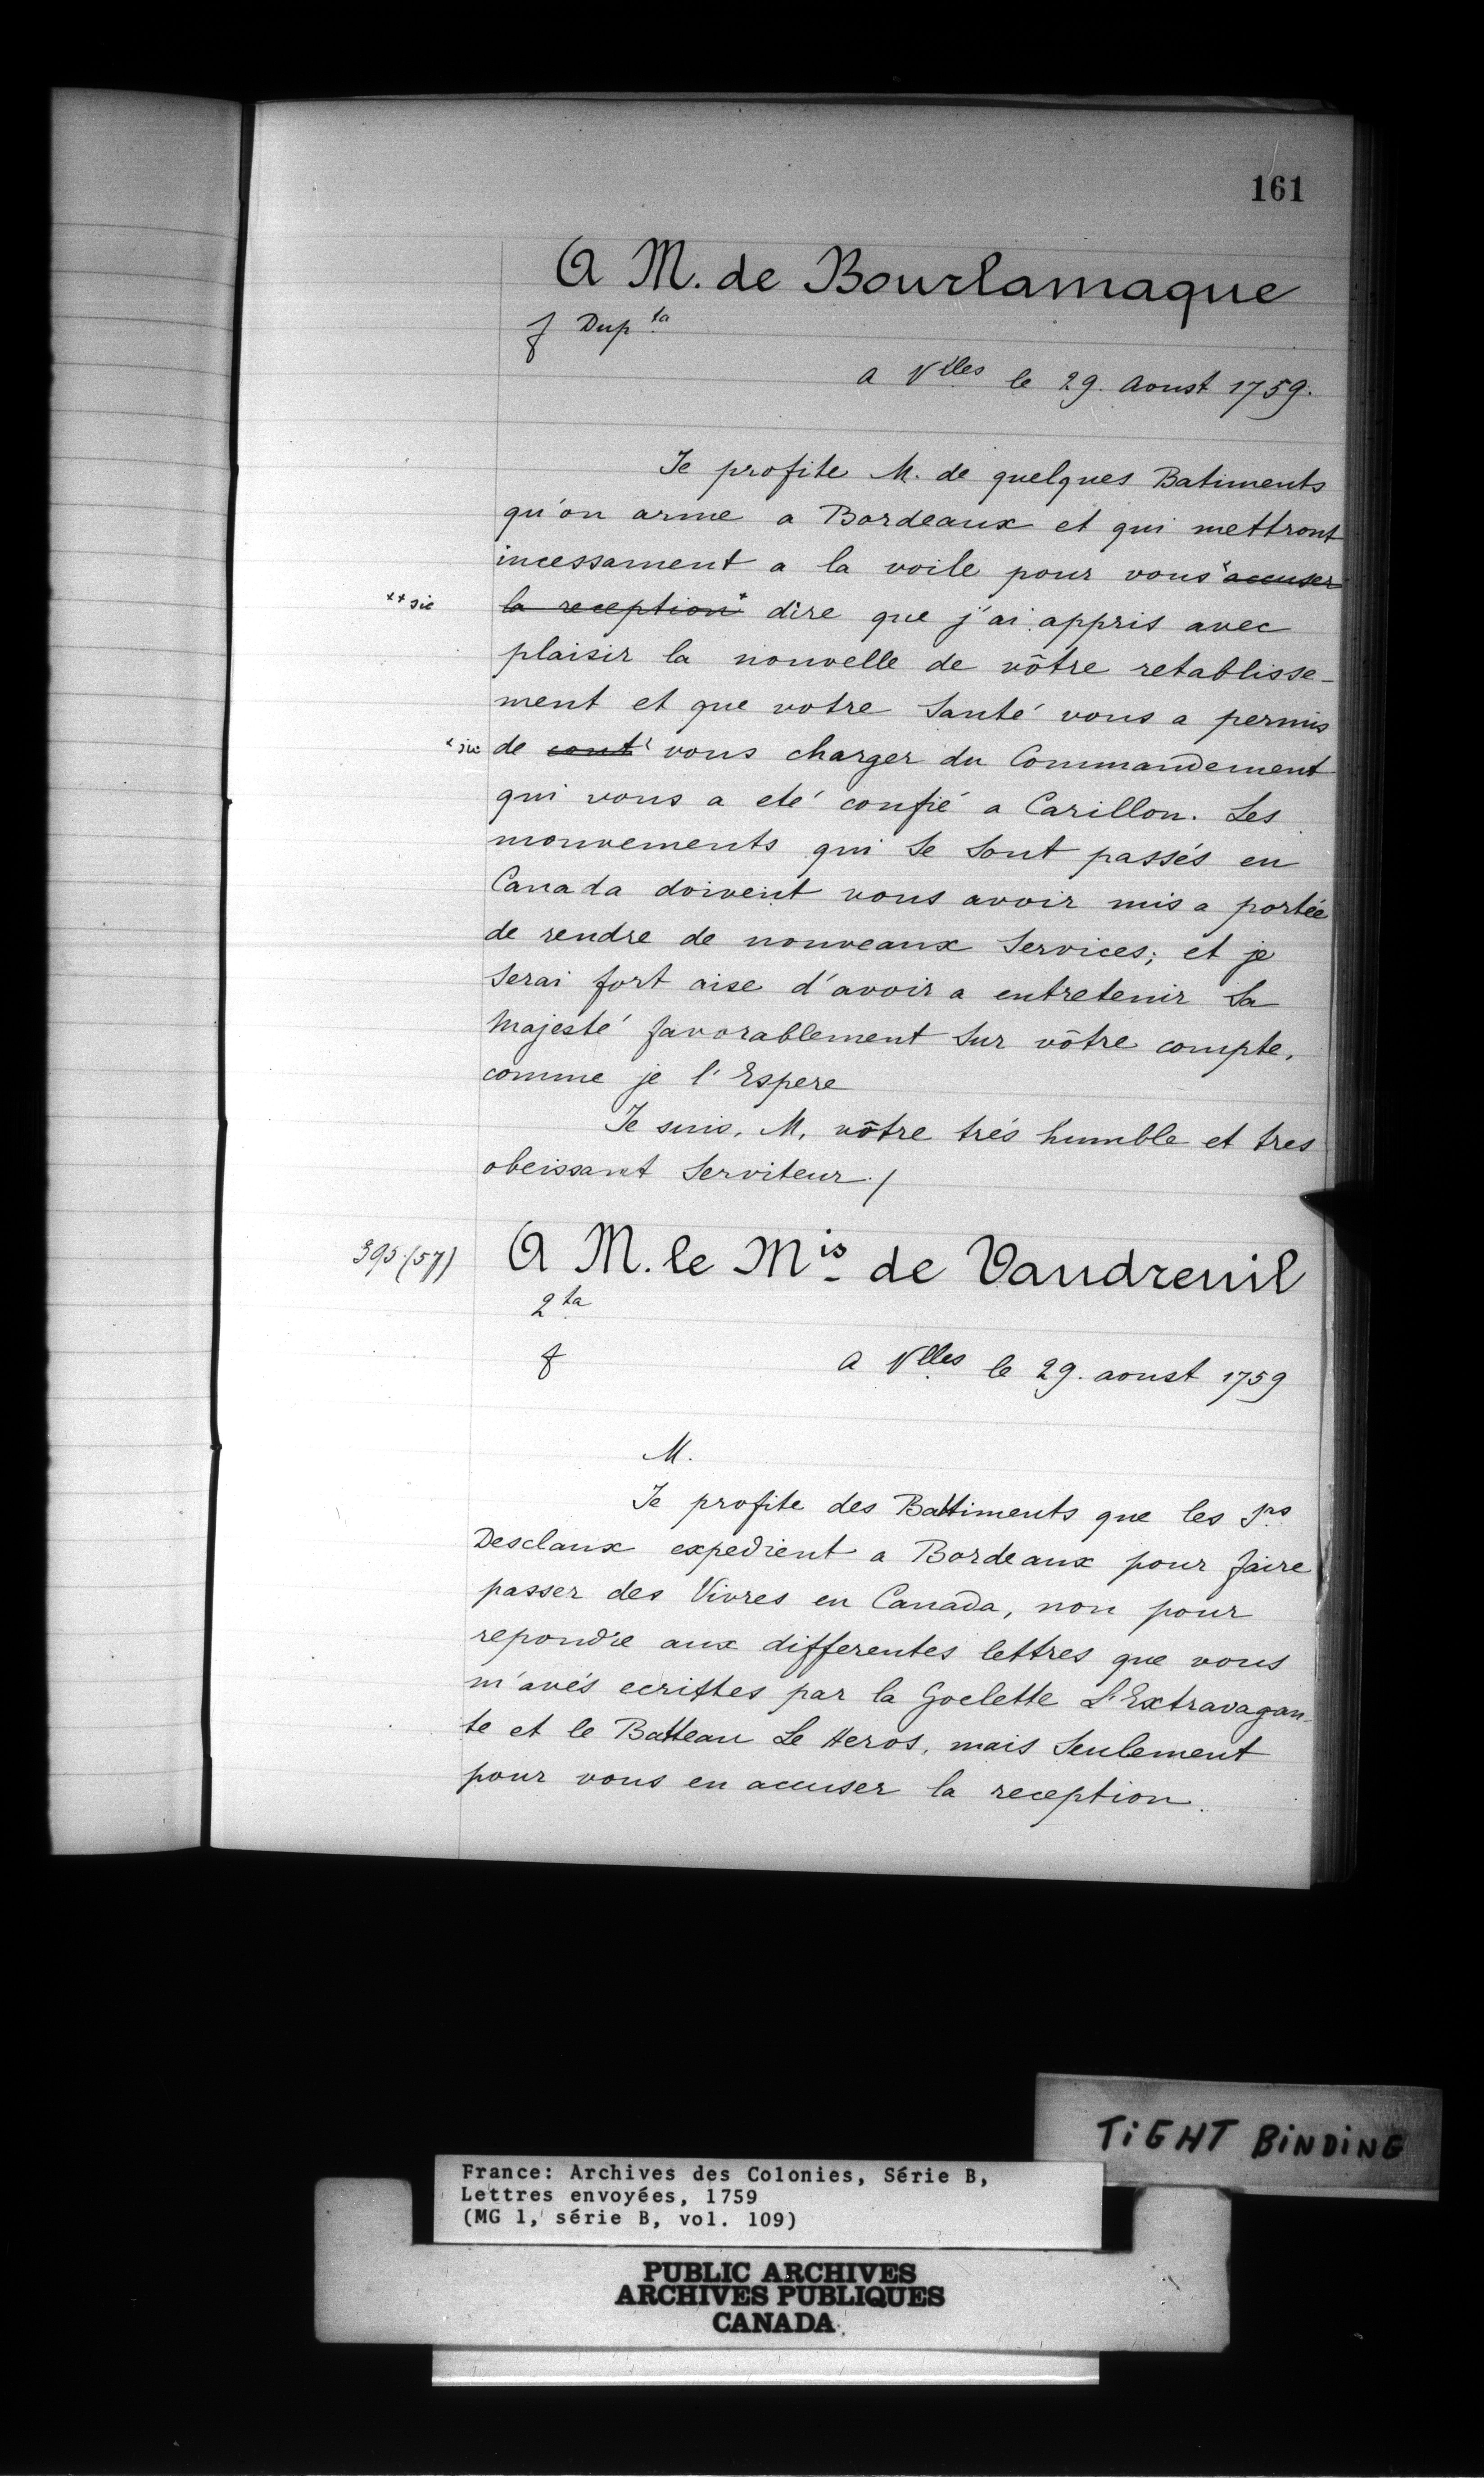 161
A M. de Bourlamaque
f Dup.ta
a Vlles le 29. Aoust 1759.
Je profite M. de quelques Batiments
qu'on arme a Bordeaux et qui mettront
incessament a la voile pour vous x accuser
xx sic la reception x dire que j'ai appris avec
plaisir la nouvelle de vôtre retablisse-
ment et que votre Santé vous a permis
x sic de cont x vous charger du Commandement
qui vous a eté confié a Carillon. Les
mouvements qui se sont passés en
Canada doivent vous avoir mis a portée
de rendre de nouveaux Services; et je
Serai fort aise d'avoir a entretenir Sa
Majesté favorablement Sur vôtre compte,
comme je l'Espere
Je suis, M, vôtre trés humble et tres
obeissant Serviteur./
395.(57) A M. le Mis de Vaudreuil
2ta
f a Vlles le 29. aoust 1759
M.
Je profite des Battiments que les Srs
Desclaux expedient a Bordeaux pour faire
passer des Vivres en Canada, non pour
repondre aux differentes lettres que vous
m'avés ecrittes par la Goelette L'Extravagan-
te et le Batteau Le Heros, mais Seulement
pour vous en accuser la reception.
TiGHT BiNDiNG
France: Archives des Colonies, Série B,
Lettres envoyées, 1759
(MG 1, série B, vol. 109)
PUBLIC ARCHIVES
ARCHIVES PUBLIQUES
CANADA